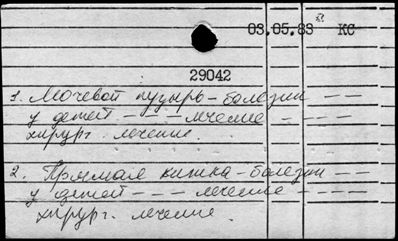 03.05.83 КС
29042
1. Мочевой пузырь - болезни - -
у детей - - - лечение - - - -
хирург. лечение.
2. Прямая кишка - болезни - -
у детей - - - лечение - - - -
хирург. лечение.